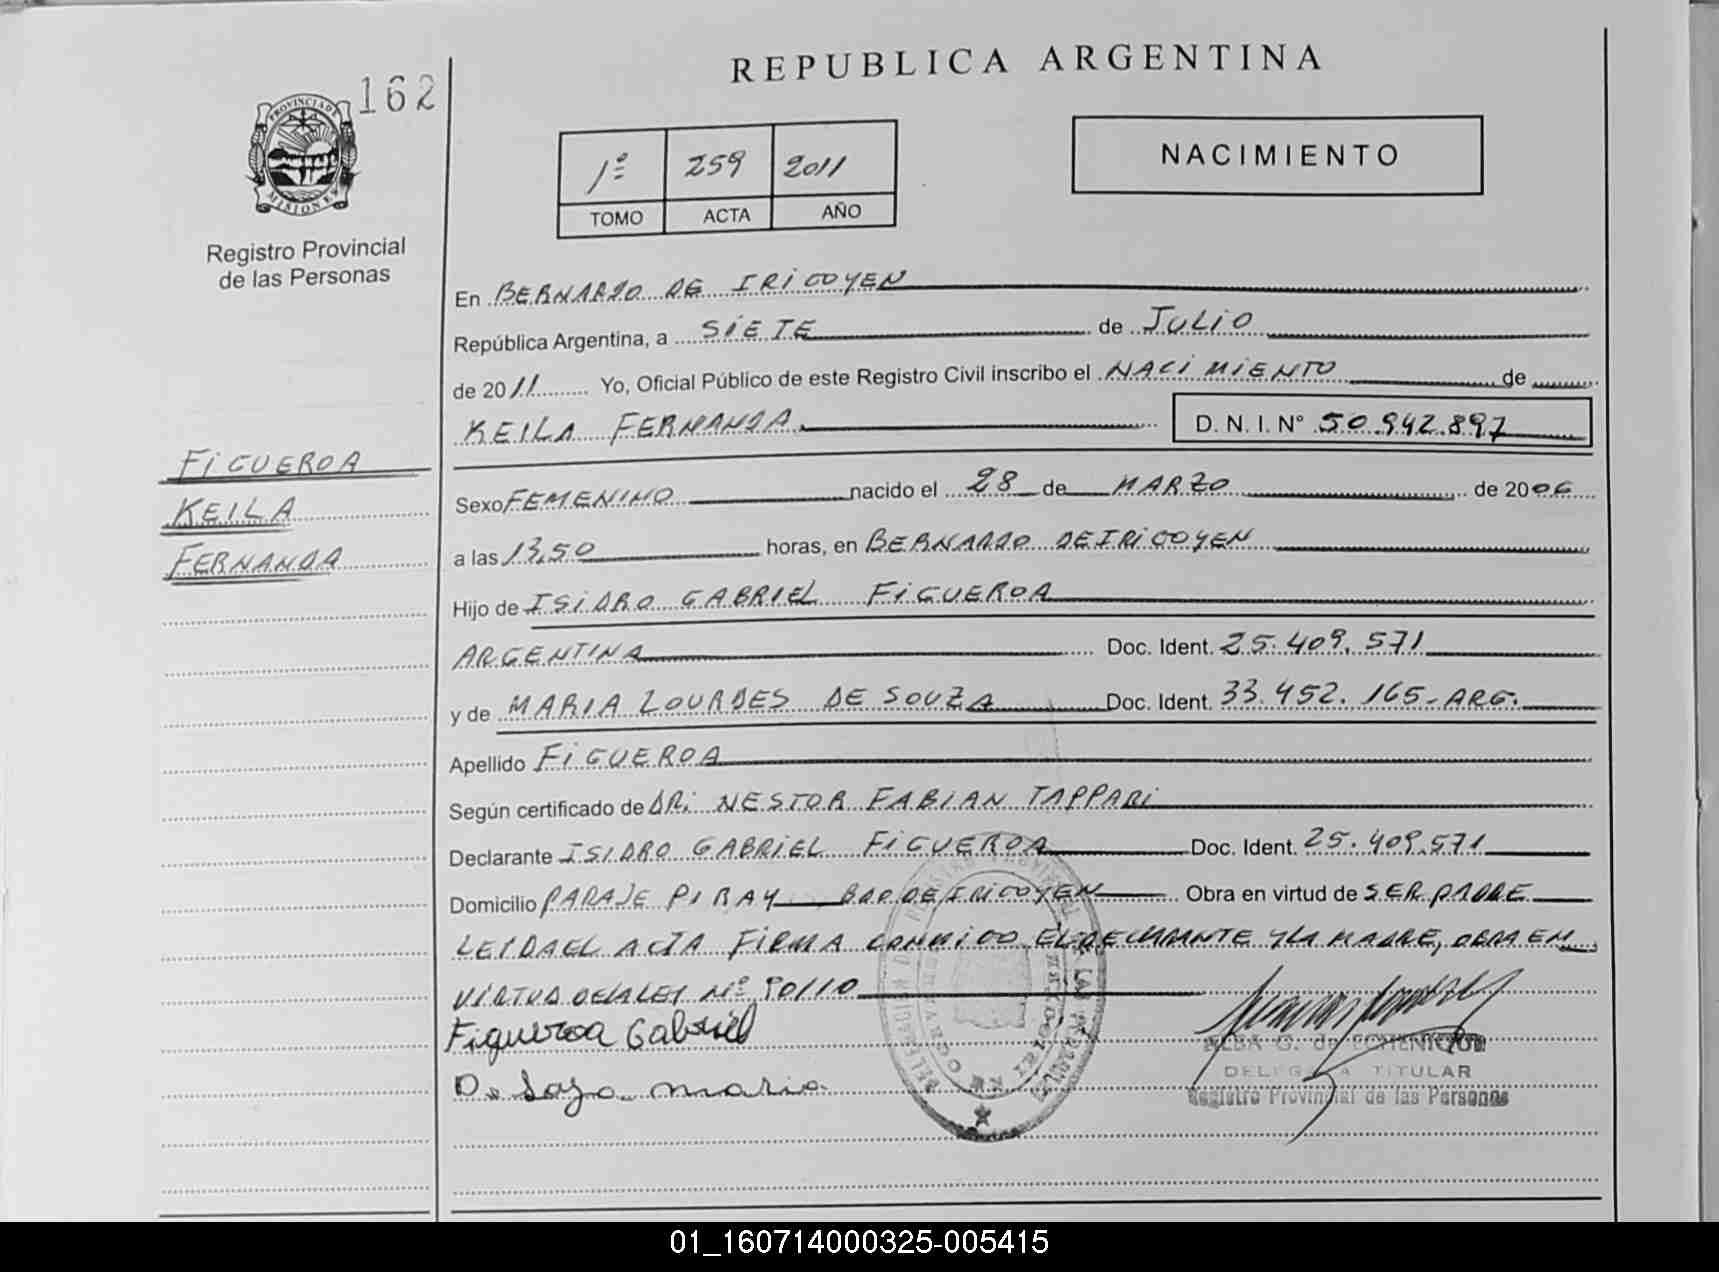 REPUBLICA ARGENTINA
162
PROVINCIA DE
MISIONES
Registro Provincial
de las Personas
1º 259 2011
TOMO ACTA AÑO
NACIMIENTO
En BERNARDO DE IRIGOYEN
República Argentina, a SIETE de JULIO
de 2011 Yo, Oficial Público de este Registro Civil inscribo el NACIMIENTO de
KEILA FERNANDA D. N. I. N° 50.942.897
FIGUEROA
KEILA
FERNANDA
Sexo FEMENINO nacido el 28 de MARZO de 2006
a las 13,50 horas, en BERNARDO DE IRIGOYEN
Hijo de ISIDRO GABRIEL FIGUEROA
ARGENTINA Doc. Ident. 25.409.571
y de MARIA LOURDES DE SOUZA Doc. Ident. 33.452.165-ARG.
Apellido FIGUEROA
Según certificado de DR. NESTOR FABIAN TAPPARI
Declarante ISIDRO GABRIEL FIGUEROA Doc. Ident. 25.409.571
Domicilio PARAJE PIRAY BDO DE IRIGOYEN Obra en virtud de SER PADRE
LEIDA EL ACTA FIRMA CONMIGO EL DECLARANTE Y LA MADRE, OBRA EN
VIRTUD DE LA LEY Nº
Figueroa Gabriel
maria
ALBA G. de ECHENIQUE
DELEGADA TITULAR
Registro Provincial de las Personas
01_160714000325-005415